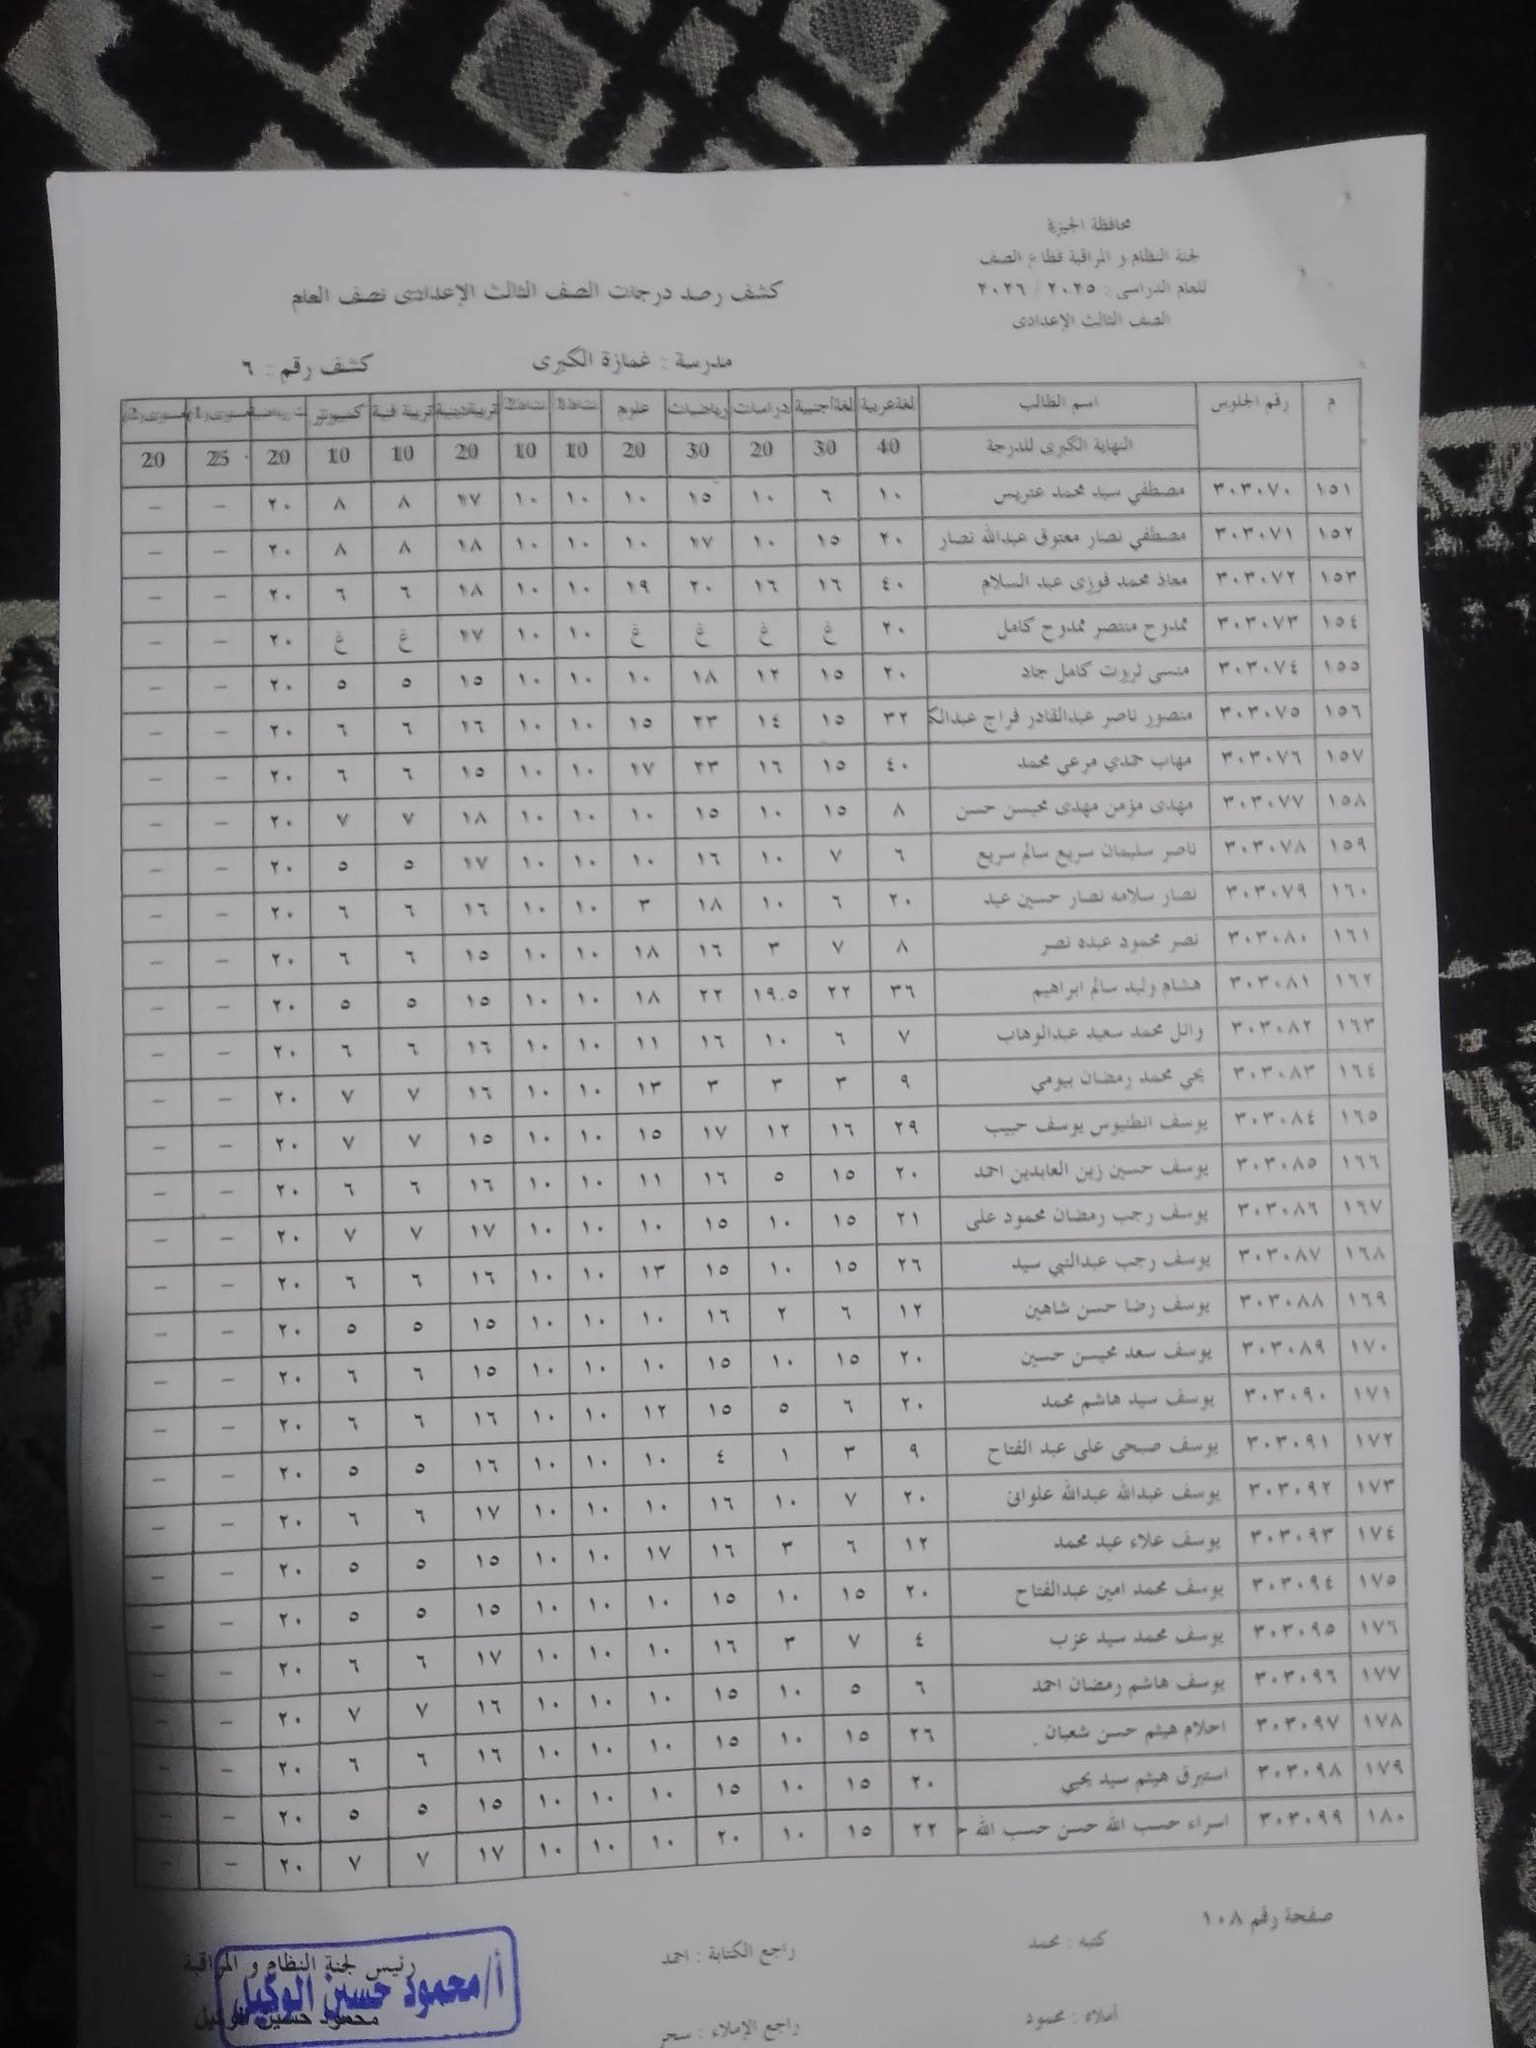 محافظة الجيزة
لجنة النظام و المراقبة قطاع الصف
للعام الدراسى : ٢٠٢٥ / ٢٠٢٦
الصف الثالث الإعدادى
كشف رصد درجات الصف الثالث الإعدادى نصف العام
مدرسة : غمازة الكبرى كشف رقم : ٦
م رقم الجلوس اسم الطالب لغة عربية لغة اجنبية دراسات رياضيات علوم نشاط1 نشاط2 تربية دينية تربية فنية كمبيوتر ت رياضية مستوى(1) مستوى(2)
النهاية الكبرى للدرجة 40 30 20 30 20 10 10 20 10 10 20 25 20
١٥١ ٣٠٣٠٧٠ مصطفي سيد محمد عتريس ١٠ ٦ ١٠ ١٥ ١٠ ١٠ ١٠ ١٧ ٨ ٨ ٢٠ – –
١٥٢ ٣٠٣٠٧١ مصطفي نصار معتوق عبدالله نصار ٢٠ ١٥ ١٠ ١٧ ١٠ ١٠ ١٠ ١٨ ٨ ٨ ٢٠ – –
١٥٣ ٣٠٣٠٧٢ معاذ محمد فوزى عبد السلام ٤٠ ١٦ ١٦ ٢٠ ١٩ ١٠ ١٠ ١٨ ٦ ٦ ٢٠ – –
١٥٤ ٣٠٣٠٧٣ ممدوح منتصر ممدوح كامل ٢٠ غ غ غ غ ١٠ ١٠ ١٧ غ غ ٢٠ – –
١٥٥ ٣٠٣٠٧٤ منسى ثروت كامل جاد ٢٠ ١٥ ١٢ ١٨ ١٠ ١٠ ١٠ ١٥ ٥ ٥ ٢٠ – –
١٥٦ ٣٠٣٠٧٥ منصور ناصر عبدالقادر فراج عبدالك ٣٢ ١٥ ١٤ ٢٣ ١٥ ١٠ ١٠ ١٦ ٦ ٦ ٢٠ – –
١٥٧ ٣٠٣٠٧٦ مهاب حمدي مرعي محمد ٤٠ ١٥ ١٦ ٢٣ ١٧ ١٠ ١٠ ١٥ ٦ ٦ ٢٠ – –
١٥٨ ٣٠٣٠٧٧ مهدى مؤمن مهدى محيسن حسن ٨ ١٥ ١٠ ١٥ ١٠ ١٠ ١٠ ١٨ ٧ ٧ ٢٠ – –
١٥٩ ٣٠٣٠٧٨ ناصر سليمان سريع سالم سريع ٦ ٧ ١٠ ١٦ ١٠ ١٠ ١٠ ١٧ ٥ ٥ ٢٠ – –
١٦٠ ٣٠٣٠٧٩ نصار سلامه نصار حسين عيد ٢٠ ٦ ١٠ ١٨ ٣ ١٠ ١٠ ١٦ ٦ ٦ ٢٠ – –
١٦١ ٣٠٣٠٨٠ نصر محمود عبده نصر ٨ ٧ ٣ ١٦ ١٨ ١٠ ١٠ ١٥ ٦ ٦ ٢٠ – –
١٦٢ ٣٠٣٠٨١ هشام وليد سالم ابراهيم ٣٦ ٢٢ ١٩.٥ ٢٢ ١٨ ١٠ ١٠ ١٥ ٥ ٥ ٢٠ – –
١٦٣ ٣٠٣٠٨٢ وائل محمد سعيد عبدالوهاب ٧ ٦ ١٠ ١٦ ١١ ١٠ ١٠ ١٦ ٦ ٦ ٢٠ – –
١٦٤ ٣٠٣٠٨٣ يحي محمد رمضان بيومي ٩ ٣ ٣ ٣ ١٣ ١٠ ١٠ ١٦ ٧ ٧ ٢٠ – –
١٦٥ ٣٠٣٠٨٤ يوسف انطنيوس يوسف حبيب ٢٩ ١٦ ١٢ ١٧ ١٥ ١٠ ١٠ ١٥ ٧ ٧ ٢٠ – –
١٦٦ ٣٠٣٠٨٥ يوسف حسين زين العابدين احمد ٢٠ ١٥ ٥ ١٦ ١١ ١٠ ١٠ ١٦ ٦ ٦ ٢٠ – –
١٦٧ ٣٠٣٠٨٦ يوسف رجب رمضان محمود على ٢١ ١٥ ١٠ ١٥ ١٠ ١٠ ١٠ ١٧ ٧ ٧ ٢٠ – –
١٦٨ ٣٠٣٠٨٧ يوسف رجب عبدالنبي سيد ٢٦ ١٥ ١٠ ١٥ ١٣ ١٠ ١٠ ١٦ ٦ ٦ ٢٠ – –
١٦٩ ٣٠٣٠٨٨ يوسف رضا حسن شاهين ١٢ ٦ ٢ ١٦ ١٠ ١٠ ١٠ ١٥ ٥ ٥ ٢٠ – –
١٧٠ ٣٠٣٠٨٩ يوسف سعد محيسن حسين ٢٠ ١٥ ١٠ ١٥ ١٠ ١٠ ١٠ ١٥ ٦ ٦ ٢٠ – –
١٧١ ٣٠٣٠٩٠ يوسف سيد هاشم محمد ٢٠ ٦ ٥ ١٥ ١٢ ١٠ ١٠ ١٦ ٦ ٦ ٢٠ – –
١٧٢ ٣٠٣٠٩١ يوسف صبحى على عبد الفتاح ٩ ٣ ١ ٤ ١٠ ١٠ ١٠ ١٦ ٥ ٥ ٢٠ – –
١٧٣ ٣٠٣٠٩٢ يوسف عبدالله عبدالله علوانى ٢٠ ٧ ١٠ ١٦ ١٠ ١٠ ١٠ ١٧ ٦ ٦ ٢٠ – –
١٧٤ ٣٠٣٠٩٣ يوسف علاء عيد محمد ١٢ ٦ ٣ ١٦ ١٧ ١٠ ١٠ ١٥ ٥ ٥ ٢٠ – –
١٧٥ ٣٠٣٠٩٤ يوسف محمد امين عبدالفتاح ٢٠ ١٥ ١٠ ١٥ ١٠ ١٠ ١٠ ١٥ ٥ ٥ ٢٠ – –
١٧٦ ٣٠٣٠٩٥ يوسف محمد سيد عزب ٤ ٧ ٣ ١٦ ١٠ ١٠ ١٠ ١٧ ٦ ٦ ٢٠ – –
١٧٧ ٣٠٣٠٩٦ يوسف هاشم رمضان احمد ٦ ٥ ١٠ ١٥ ١٠ ١٠ ١٠ ١٦ ٧ ٧ ٢٠ – –
١٧٨ ٣٠٣٠٩٧ احلام هيثم حسن شعبان ٢٦ ١٥ ١٠ ١٥ ١٠ ١٠ ١٠ ١٦ ٦ ٦ ٢٠ – –
١٧٩ ٣٠٣٠٩٨ استبرق هيثم سيد يحيي ٢٠ ١٥ ١٠ ١٥ ١٠ ١٠ ١٠ ١٥ ٥ ٥ ٢٠ – –
١٨٠ ٣٠٣٠٩٩ اسراء حسب الله حسن حسب الله ح ٢٢ ١٥ ١٠ ٢٠ ١٠ ١٠ ١٠ ١٧ ٧ ٧ ٢٠ – –
صفحة رقم ١٠٨
كتبه : محمد راجع الكتابة : احمد رئيس لجنة النظام و المراقبة
أ/محمود حسين الوكيل
أملاه : محمود راجع الإملاء : سحر محمود حسين الوكيل